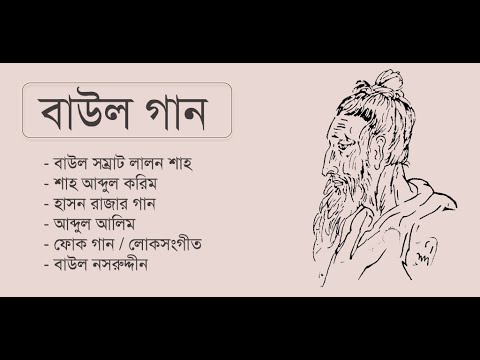 বাউল গান
- বাউল সম্রাট লালন শাহ
- শাহ আব্দুল করিম
- হাসন রাজার গান
- আব্দুল আলিম
- ফোক গান / লোকসংগীত
- বাউল নসরুদ্দীন